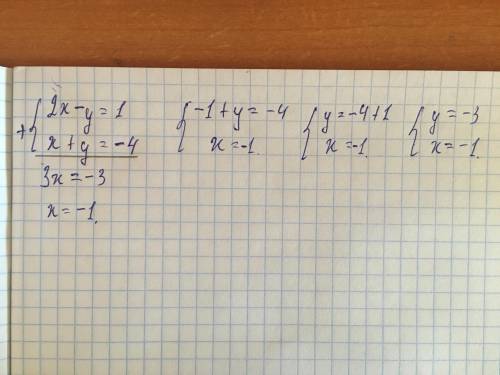 + { 2x - y = 1
x + y = -4
3x = -3
x = -1.
{ -1 + y = -4
x = -1.
{ y = -4 + 1
x = -1.
{ y = -3
x = -1.